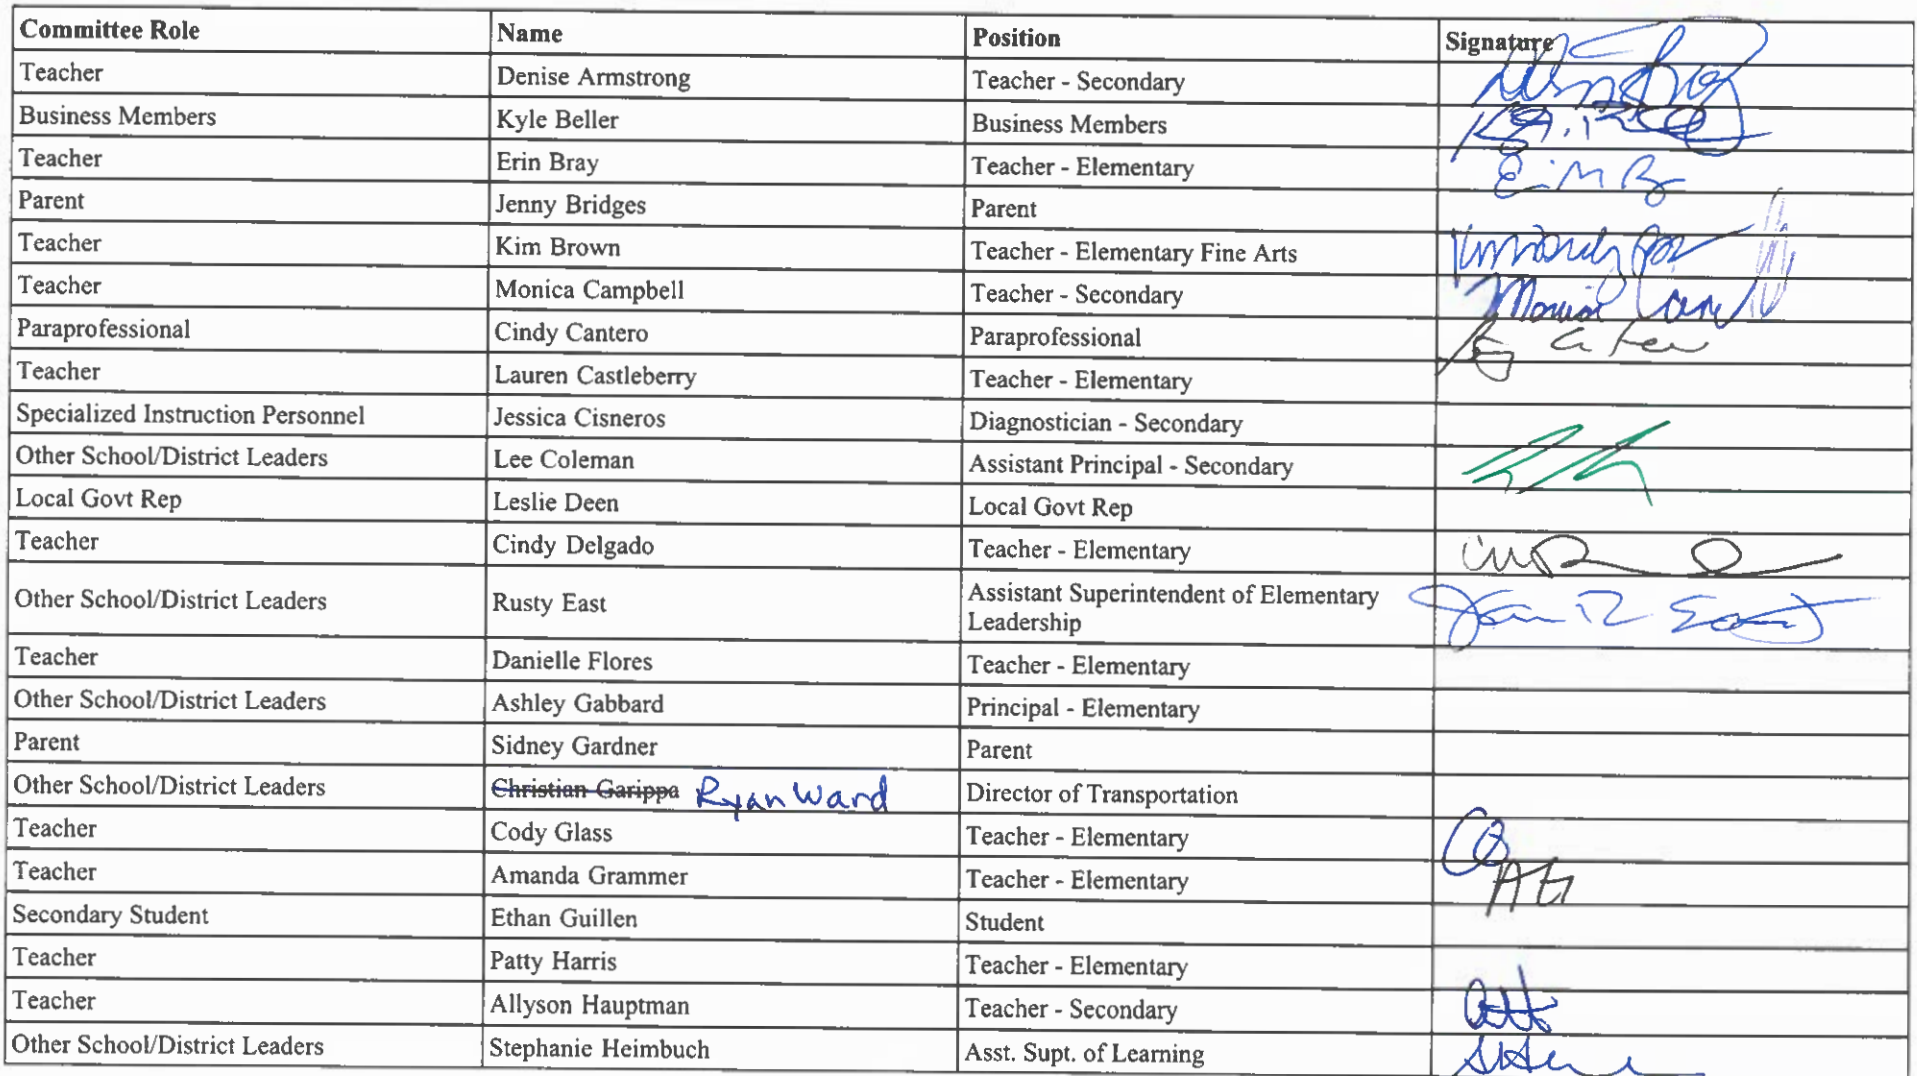 Committee Role Name Position Signature
Teacher Denise Armstrong Teacher - Secondary
Business Members Kyle Beller Business Members
Teacher Erin Bray Teacher - Elementary
Parent Jenny Bridges Parent
Teacher Kim Brown Teacher - Elementary Fine Arts
Teacher Monica Campbell Teacher - Secondary
Paraprofessional Cindy Cantero Paraprofessional
Teacher Lauren Castleberry Teacher - Elementary
Specialized Instruction Personnel Jessica Cisneros Diagnostician - Secondary
Other School/District Leaders Lee Coleman Assistant Principal - Secondary
Local Govt Rep Leslie Deen Local Govt Rep
Teacher Cindy Delgado Teacher - Elementary
Other School/District Leaders Rusty East Assistant Superintendent of Elementary
Leadership
Teacher Danielle Flores Teacher - Elementary
Other School/District Leaders Ashley Gabbard Principal - Elementary
Parent Sidney Gardner Parent
Other School/District Leaders Christian Garippa Ryan Ward Director of Transportation
Teacher Cody Glass Teacher - Elementary
Teacher Amanda Grammer Teacher - Elementary
Secondary Student Ethan Guillen Student
Teacher Patty Harris Teacher - Elementary
Teacher Allyson Hauptman Teacher - Secondary
Other School/District Leaders Stephanie Heimbuch Asst. Supt. of Learning